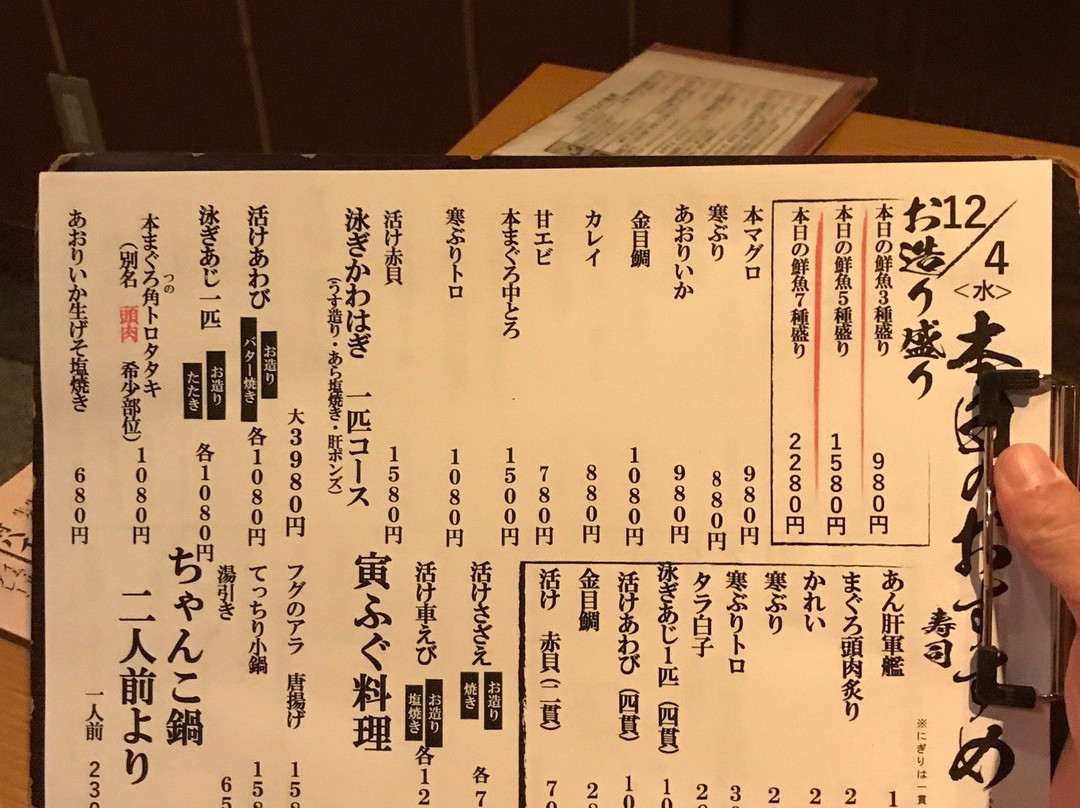 12/4
<水>
本日のおすすめ
お造り盛り
本日の鮮魚3種盛り 980円
本日の鮮魚5種盛り 1580円
本日の鮮魚7種盛り 2280円
本マグロ 980円
寒ぶり 880円
あおりいか 980円
金目鯛 1080円
カレイ 880円
甘エビ 780円
本まぐろ中とろ 1500円
寒ぶりトロ 1080円
活け赤貝 1580円
泳ぎかわはぎ 一匹コース
(うす造り・あら塩焼き・肝ポンズ)
大3980円
活けあわび お造り バター焼き 各1080円
泳ぎあじ一匹 お造り たたき 各1080円
本まぐろ角トロタタキ
つの
(別名 頭肉 希少部位) 1080円
あおりいか生げそ塩焼き 680円
寿司
※にぎりは一貫
あん肝軍艦 1
まぐろ頭肉炙り 2
かれい 2
寒ぶり 2
寒ぶりトロ
タラ白子
泳ぎあじ1匹(四貫) 10
活けあわび(四貫) 10
金目鯛
活け 赤貝(二貫) 70
活けさざえ お造り 焼き 各7
活け車えび お造り 塩焼き 各12
寅ふぐ料理
フグのアラ 唐揚げ 158
てっちり小鍋 158
湯引き 65
ちゃんこ鍋
二人前より
一人前 230